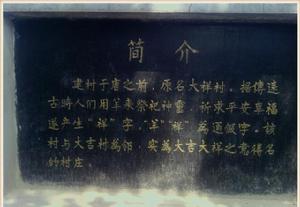 简介
建村于唐之前，原名大祥村。据傳远
古時人们用羊来祭祀神靈，祈求平安享福
遂产生“祥”字，“羊”“祥”為通假字。該
村与大吉村為邻，实為大吉大祥之意得名
的村庄。